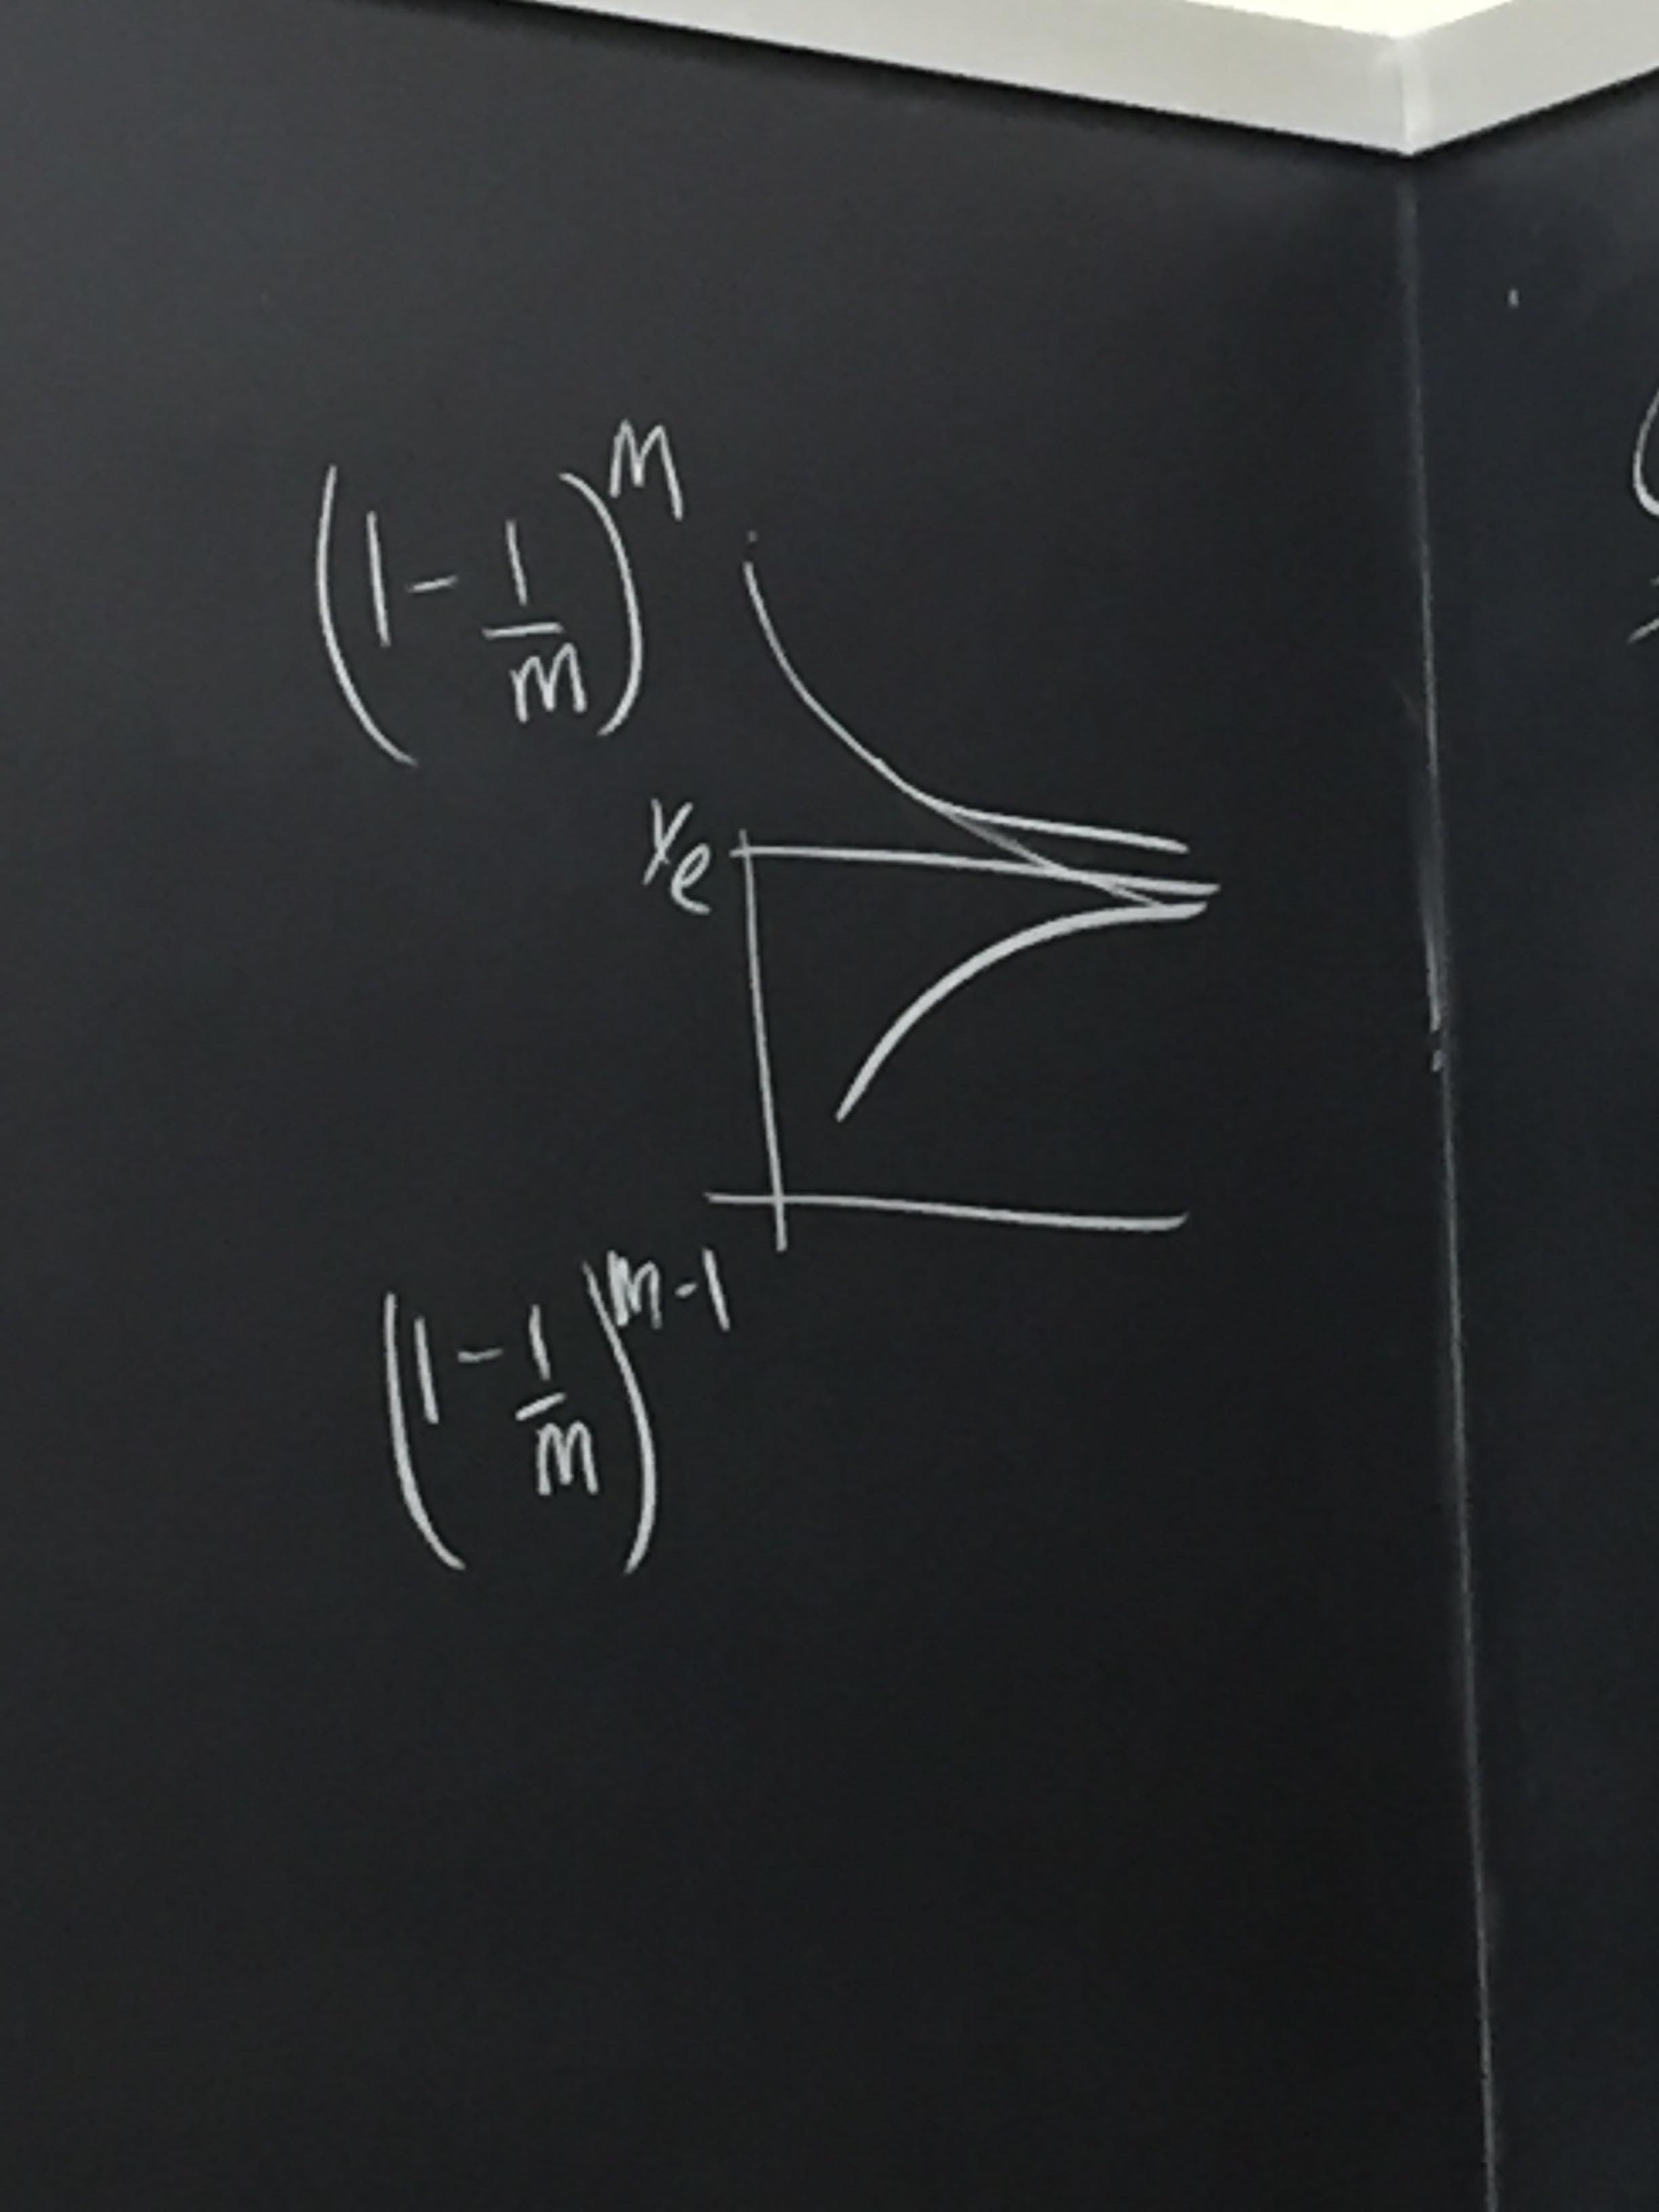 (1 - 1/m)^m
1/e
(1 - 1/m)^m-1